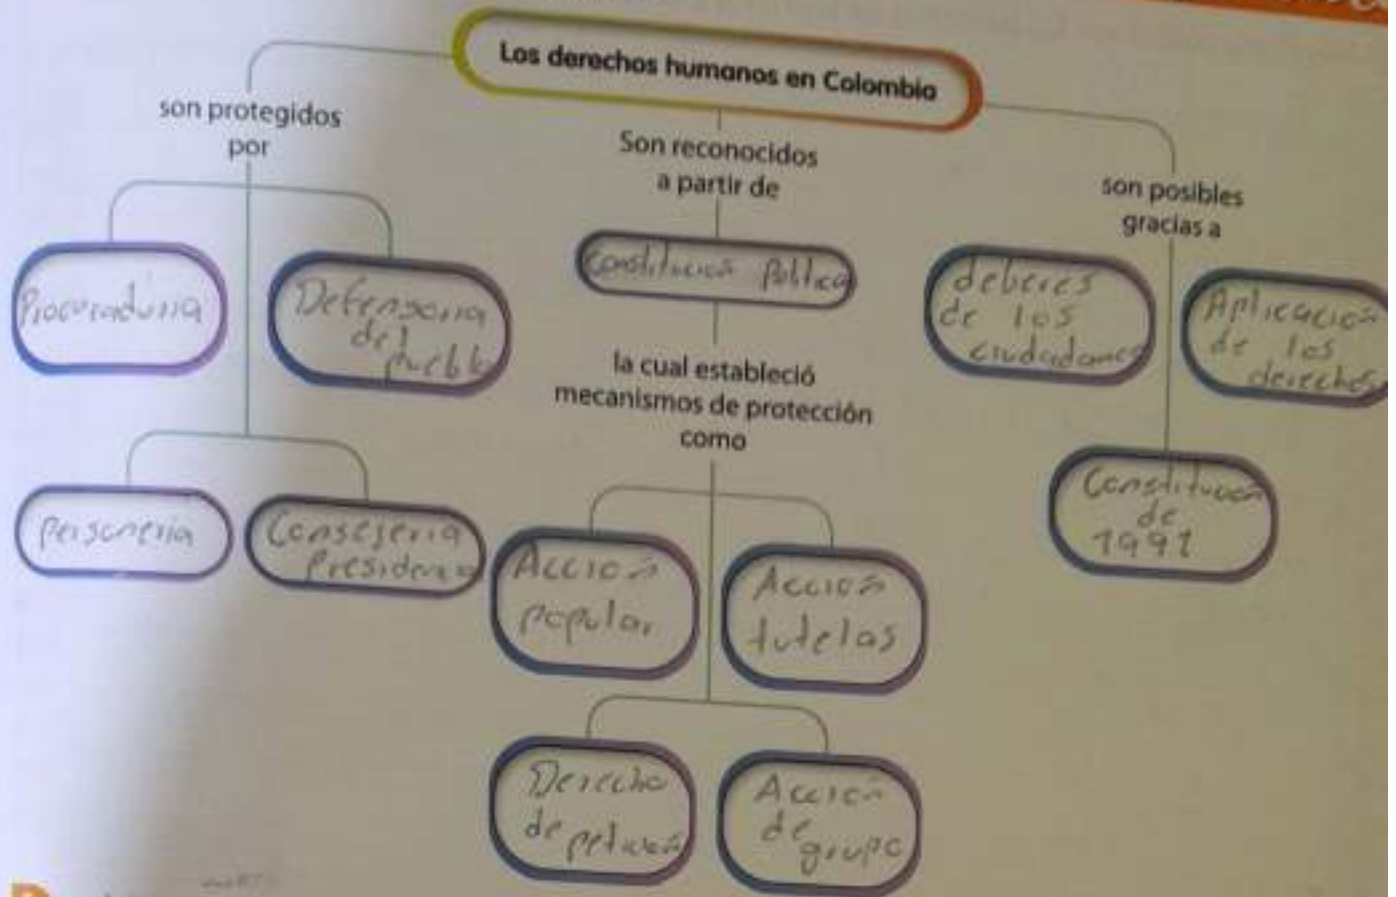 Los derechos humanos en Colombia
son protegidos
por
Procuraduria
Defensoria
del
pueblo
personeria
Consejeria
Presidencia
Son reconocidos
a partir de
Constitución Politica
la cual estableció
mecanismos de protección
como
Acción
popular
Acción
tutelas
Derecho
de petición
Acción
de
grupo
son posibles
gracias a
deberes
de los
ciudadanos
Aplicación
de los
derechos
Constitución
de
1991